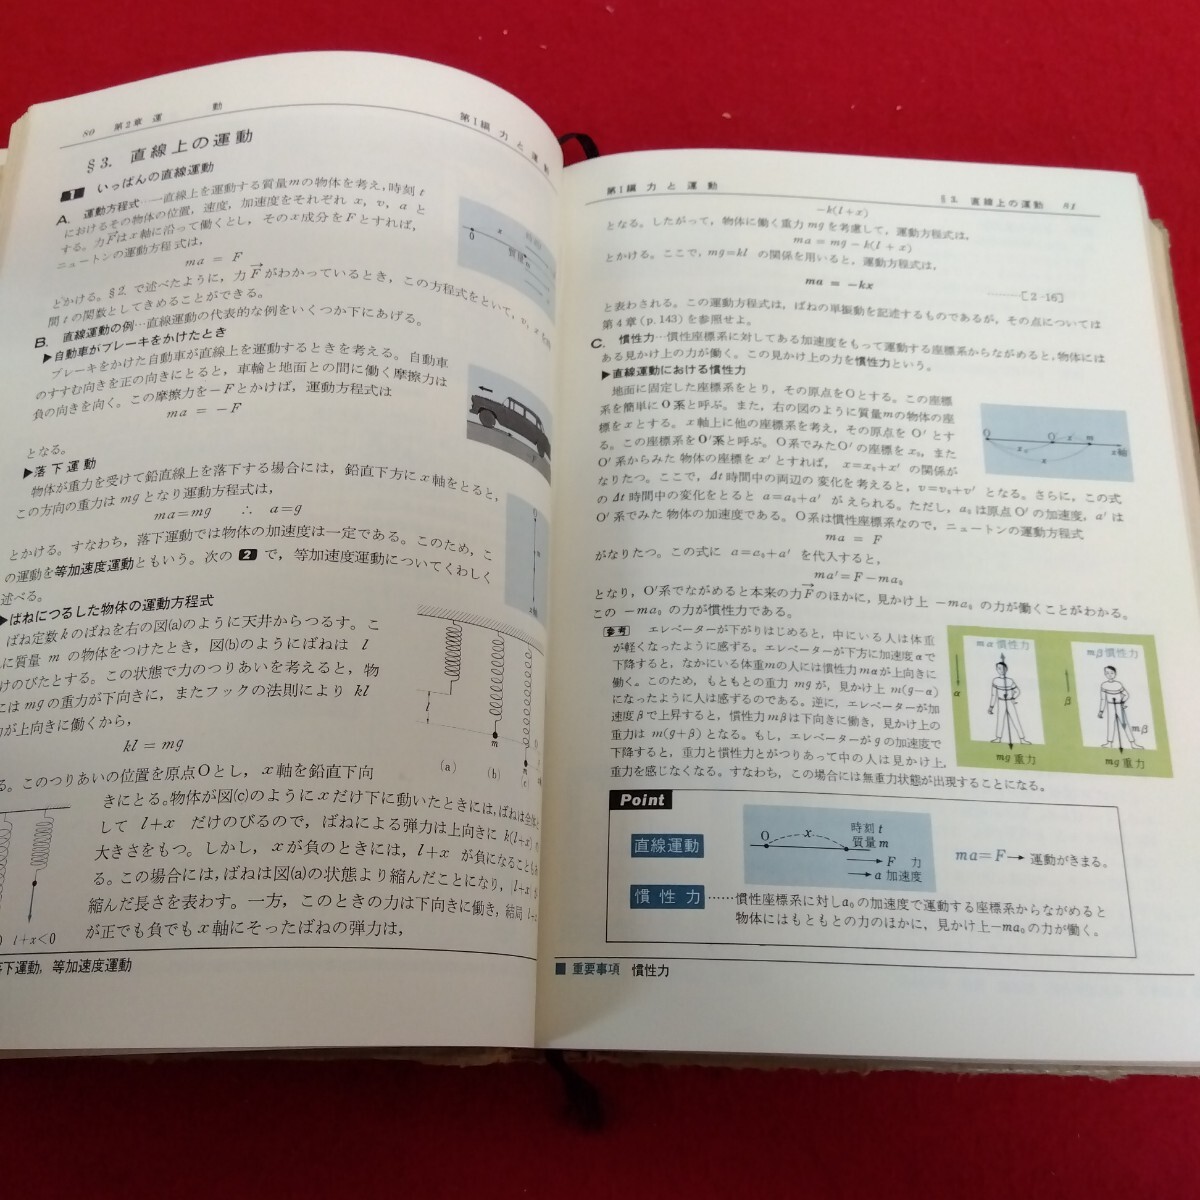 80 第2章 運 動
第1編 力 と 運 動
§3. 直線上の運動
1 いっぱんの直線運動
A. 運動方程式…一直線上を運動する質量mの物体を考え,時刻 t
におけるその物体の位置,速度,加速度をそれぞれ x, v, a と
する。力Fはx軸に沿って働くとし,そのx成分をFとすれば,
ニュートンの運動方程式は,
ma = F
とかける。§2. で述べたように,力Fがわかっているとき,この方程式をといて, v, x を時
間 t の関数としてきめることができる。
B. 直線運動の例…直線運動の代表的な例をいくつか下にあげる。
▶自動車がブレーキをかけたとき
ブレーキをかけた自動車が直線上を運動するときを考える。自動車
のすすむ向きを正の向きにとると,車輪と地面との間に働く摩擦力は
負の向きを向く。この摩擦力を−Fとかけば,運動方程式は
ma = −F
となる。
▶落下運動
物体が重力を受けて鉛直線上を落下する場合には,鉛直下方に x軸をとると,
この方向の重力は mg となり運動方程式は,
ma=mg ∴ a=g
とかける。すなわち,落下運動では物体の加速度は一定である。このため,こ
の運動を等加速度運動ともいう。次の 2 で,等加速度運動についてくわしく
述べる。
▶ばねにつるした物体の運動方程式
ばね定数kのばねを右の図(a)のように天井からつるす。こ
に質量 m の物体をつけたとき,図(b)のようにばねは l
けのびたとする。この状態で力のつりあいを考えると,物
には mg の重力が下向きに,またフックの法則により kl
が上向きに働くから,
kl = mg
る。このつりあいの位置を原点Oとし, x軸を鉛直下向
きにとる。物体が図(c)のように x だけ下に動いたときには,ばねは全体と
して l+x だけのびるので,ばねによる弾力は上向きに k(l+x) の
大きさをもつ。しかし, xが負のときには, l+x が負になることもあ
る。この場合には,ばねは図(a)の状態より縮んだことになり, |l+x|
縮んだ長さを表わす。一方,このときの力は下向きに働き,結局
が正でも負でも x軸にそったばねの弾力は,
(a) (b) (c)
l+x<0
落下運動, 等加速度運動
第1編 力 と 運 動
§3. 直線上の運動 81
−k(l+x)
となる。したがって,物体に働く重力 mg を考慮して,運動方程式は,
ma = mg − k(l + x)
とかける。ここで, mg=kl の関係を用いると,運動方程式は,
ma = −kx
……[2-16]
と表わされる。この運動方程式は,ばねの単振動を記述するものであるが,その点については
第4章(p.143)を参照せよ。
C. 慣性力…慣性座標系に対してある加速度をもって運動する座標系からながめると,物体には
ある見かけ上の力が働く。この見かけ上の力を慣性力という。
▶直線運動における慣性力
地面に固定した座標系をとり,その原点をOとする。この座標
系を簡単に O系と呼ぶ。また,右の図のように質量mの物体の座
標を x とする。x軸上に他の座標系を考え,その原点を O′ とす
る。この座標系を O′系と呼ぶ。O系でみた O′ の座標を x₀, また
O′系からみた 物体の座標を x′ とすれば, x=x₀+x′ の関係が
なりたつ。ここで, Δt時間中の両辺の 変化を考えると, v=v₀+v′ となる。さらに,この式
の Δt時間中の変化をとると a=a₀+a′ がえられる。ただし, a₀は原点 O′ の加速度, a′ は
O′系でみた 物体の加速度である。O系は慣性座標系なので,ニュートンの運動方程式
ma = F
がなりたつ。この式に a=a₀+a′ を代入すると,
ma′=F−ma₀
となり, O′系でながめると本来の力Fのほかに,見かけ上 −ma₀ の力が働くことがわかる。
この −ma₀ の力が慣性力である。
参考 エレベーターが下がりはじめると,中にいる人は体重
が軽くなったように感ずる。エレベーターが下方に加速度 α で
下降すると,なかにいる体重mの人には慣性力 mαが上向きに
働く。このため,もともとの重力 mg が,見かけ上 m(g−α)
になったように人は感ずるのである。逆に,エレベーターが加
速度 β で上昇すると,慣性力 mβ は下向きに働き,見かけ上の
重力は m(g+β) となる。もし,エレベーターが g の加速度で
下降すると,重力と慣性力とがつりあって中の人は見かけ上,
重力を感じなくなる。すなわち,この場合には無重力状態が出現することになる。
mα慣性力
mβ慣性力
α
β
mβ
mg 重力
mg 重力
Point
直線運動
O x
時刻 t
質量 m
F 力
a 加速度
ma=F→ 運動がきまる。
慣性力 ……慣性座標系に対しa₀の加速度で運動する座標系からながめると
物体にはもともとの力のほかに,見かけ上−ma₀の力が働く。
■ 重要事項 慣性力